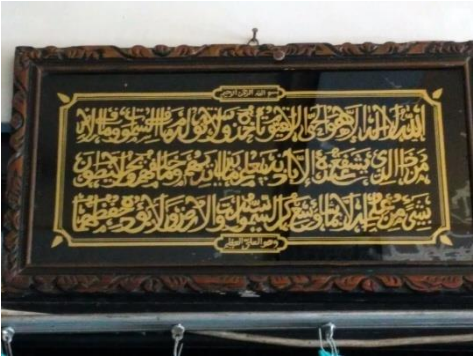 بسم الله الرحمن الرحيم
الله لا إله إلا هو الحي القيوم لا تأخذه سنة ولا نوم له ما في السموات وما في الأرض
من ذا الذي يشفع عنده إلا بإذنه يعلم ما بين أيديهم وما خلفهم ولا يحيطون
بشيء من علمه إلا بما شاء وسع كرسيه السموات والأرض ولا يؤده حفظهما
وهو العلي العظيم